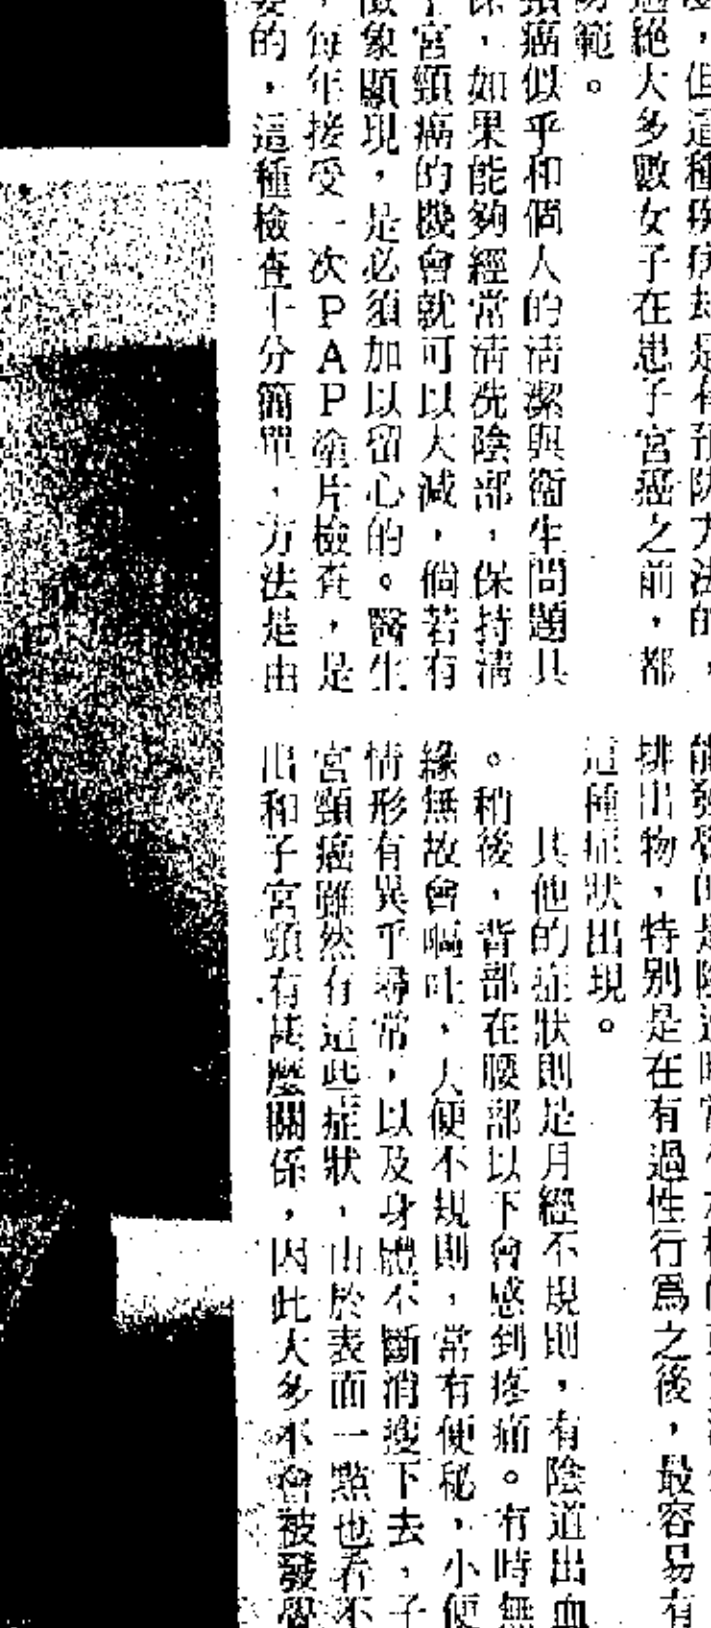 ，但這種疾病却是有預防方法的，
絕大多數女子在患子宮癌之前，都
範。
頸癌似乎和個人的清潔與衞生問題具
係，如果能夠經常清洗陰部，保持清
子宮頸癌的機會就可以大減，倘若有
徵象顯現，是必須加以留心的。醫生
，每年接受一次PAP塗片檢查，是
要的，這種檢查十分簡單，方法是由
排出物，特別是在有過性行爲之後，最容易有
這種症狀出現。
其他的症狀則是月經不規則，有陰道出血
。稍後，背部在腰部以下會感到疼痛。有時無
緣無故會嘔吐，大便不規則，常有便秘，小便
情形有異乎尋常，以及身體不斷消瘦下去，子
宮頸癌雖然有這些症狀，由於表面一點也看不
出和子宮頸有甚麼關係，因此大多不會被發覺